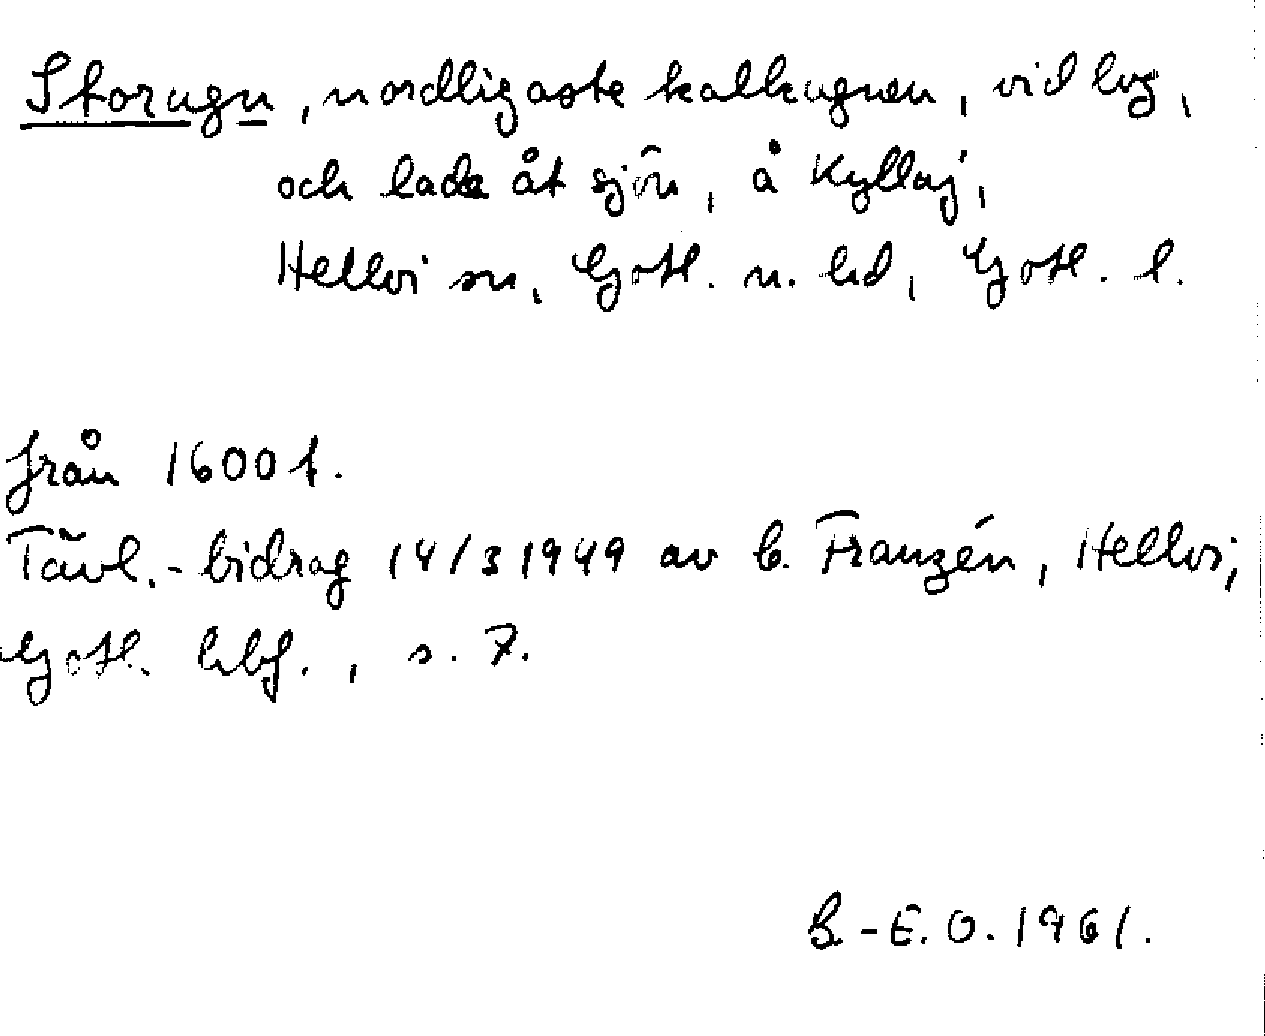 Storugn, nordligaste kalkugnen, vid lvg,
och lada åt sjön, å Kyllaj,
Hellvi sn, Gotl. n. hd, Gotl. l.
från 1600 t.
Tävl.-bidrag 14/3 1949 av B. Franzén, Hellvi;
Gotl. hbf., s. 7.
B.-E. O. 1961.